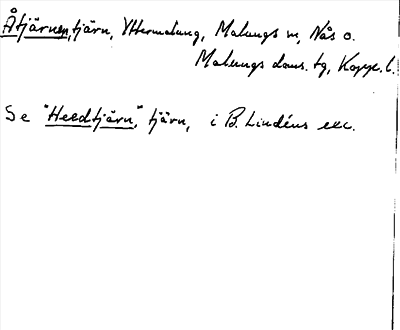 Åtjärnen, tjärn, Yttermalung, Malungs sn, Nås o.
Malungs doms. tg, Kopp. l.
Se "Heedtjärn," tjärn, i B. Lindéns exc.